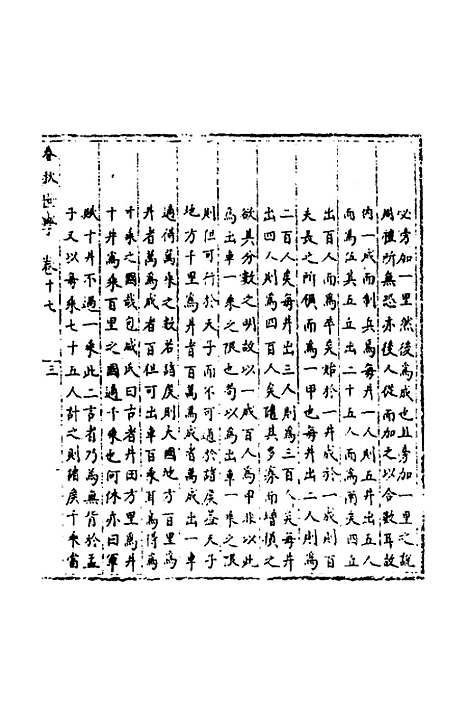 必旁加一里然後爲成也且旁加一里之說
周禮所無恐亦後人從而加之以合數耳故
内一成而制兵爲每井一人則五井出五人
而爲伍其五立出二十五人而爲兩矣四立
出百人而爲卒矣始於一井成於一成則百
夫長之所俱而爲一甲也每井出二人則爲
二百人矣每井出三人則爲三百人矣每井
出四人則爲四百人矣隨其多寡而增損之
欲其分數之明故以一成百人爲甲非以此
爲出車一乘之限也苟以爲出車一乘之限
則但可行於天子而不可通於諸侯葢天子
地方千里爲井者百萬爲成者萬成出一車
適得萬乘之數若諸侯則大國地方百里爲
井者萬爲成者百但可出車百乘耳爲得爲
千乘之國哉包咸氏曰古者井田方里爲井
十井爲乘百里之國適千乘也何休亦曰軍
賦十井不過一乘此二言者乃爲無背於孟
子又以每乘七十五人計之則諸侯千乘當
春秋世學 卷十七 三